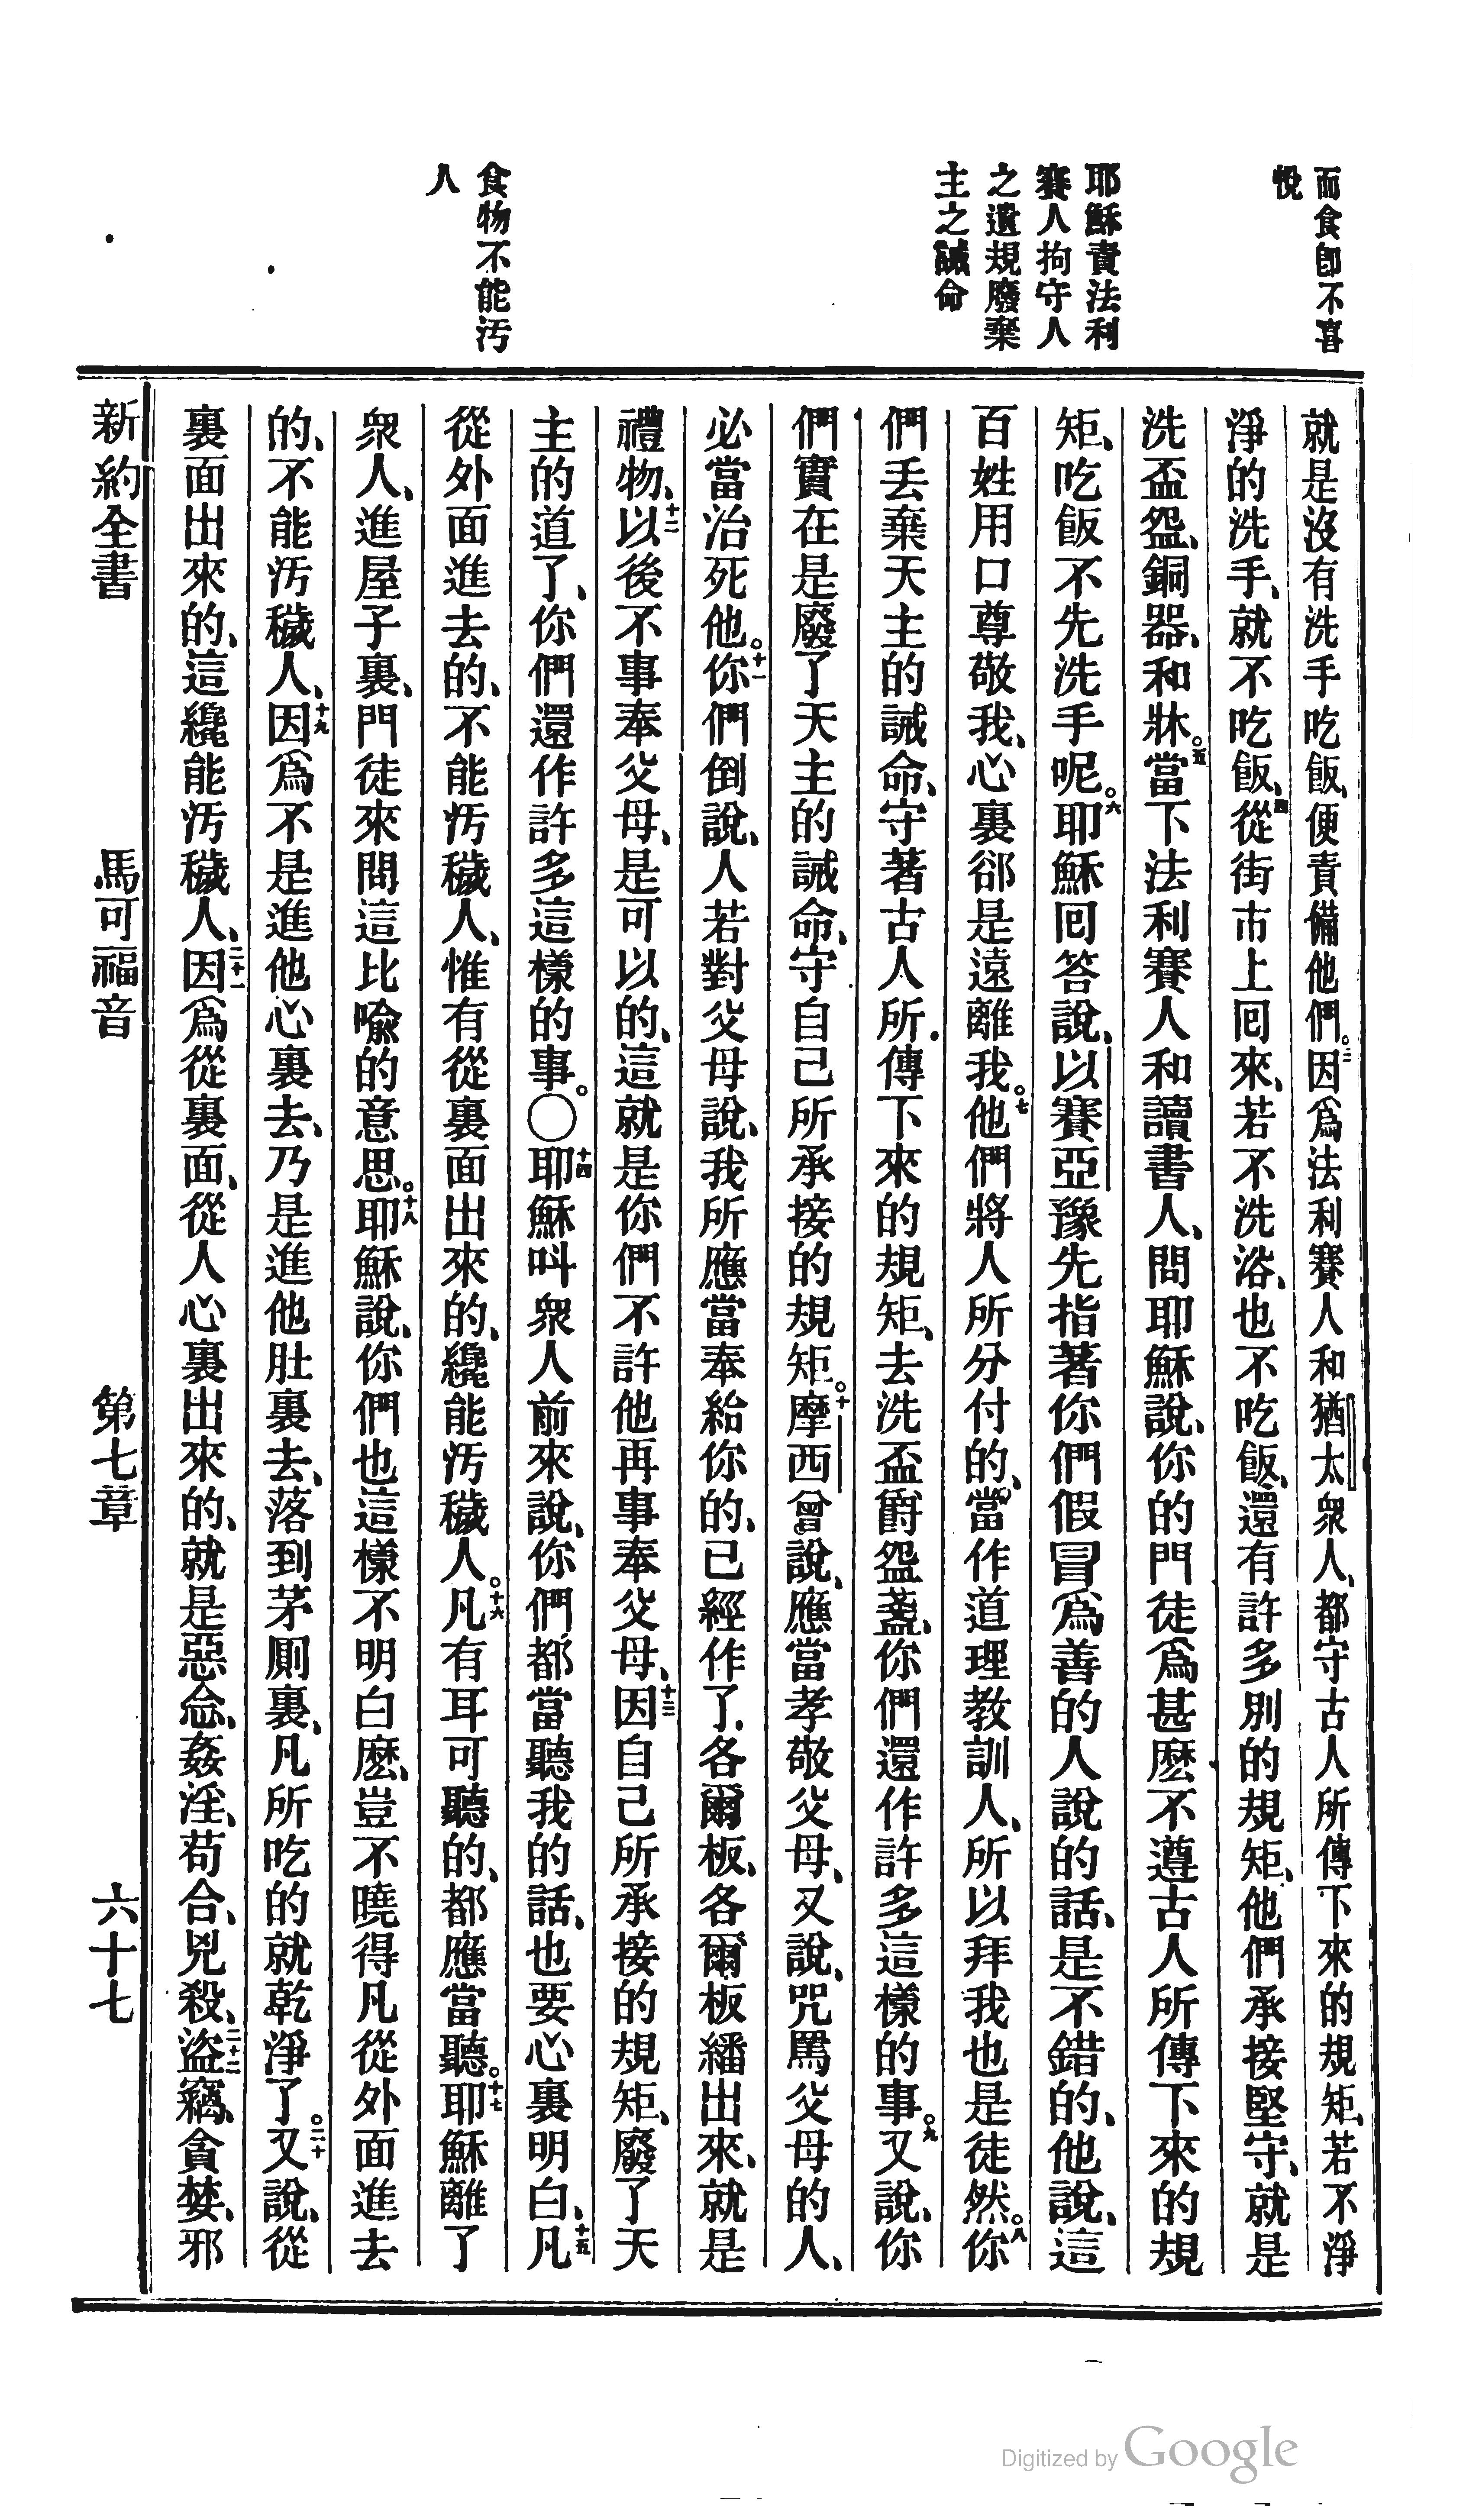 而食卽不喜
悅
耶穌責法利
賽人拘守人
之遺規廢棄
主之誡命
食物不能汚
人
就是沒有洗手吃飯、便責備他們。三因爲法利賽人和猶太衆人、都守古人所傳下來的規矩、若不淨
淨的洗手、就不吃飯、四從街市上囘來、若不洗浴、也不吃飯、還有許多別的規矩、他們承接堅守、就是
洗盃盌、銅器、和牀。五當下法利賽人和讀書人、問耶穌說、你的門徒爲甚麽不遵古人所傳下來的規
矩、吃飯不先洗手呢。六耶穌囘答說、以賽亞豫先指著你們假冒爲善的人說的話、是不錯的、他說、這
百姓用口尊敬我、心裏卻是遠離我。七他們將人所分付的、當作道理教訓人、所以拜我也是徒然。八你
們丟棄天主的誡命、守著古人所傳下來的規矩、去洗盃爵盌盞、你們還作許多這樣的事。九又說、你
們實在是廢了天主的誡命、守自己所承接的規矩。十摩西曾說、應當孝敬父母、又說、咒罵父母的人、
必當治死他。十一你們倒說、人若對父母說、我所應當奉給你的、已經作了各爾板、各爾板繙出來、就是
禮物、十二以後不事奉父母、是可以的、這就是你們不許他再事奉父母、十三因自己所承接的規矩、廢了天
主的道了、你們還作許多這樣的事。〇十四耶穌呌衆人前來說、你們都當聽我的話、也要心裏明白、十五凡
從外面進去的、不能汚穢人、惟有從裏面出來的、纔能汚穢人。十六凡有耳可聽的、都應當聽。十七耶穌離了
衆人、進屋子裏、門徒來問這比喩的意思。十八耶穌說、你們也這樣不明白麽、豈不曉得凡從外面進去
的、不能汚穢人、十九因爲不是進他心裏去、乃是進他肚裏去、落到茅厠裏、凡所吃的就乾淨了。二十又說、從
裏面出來的、這纔能汚穢人、二十一因爲從裏面、從人心裏出來的、就是惡念、姦淫、苟合、兇殺、二十二盜竊、貪婪、邪
新約全書　馬可福音　第七章　六十七
Digitized by Google